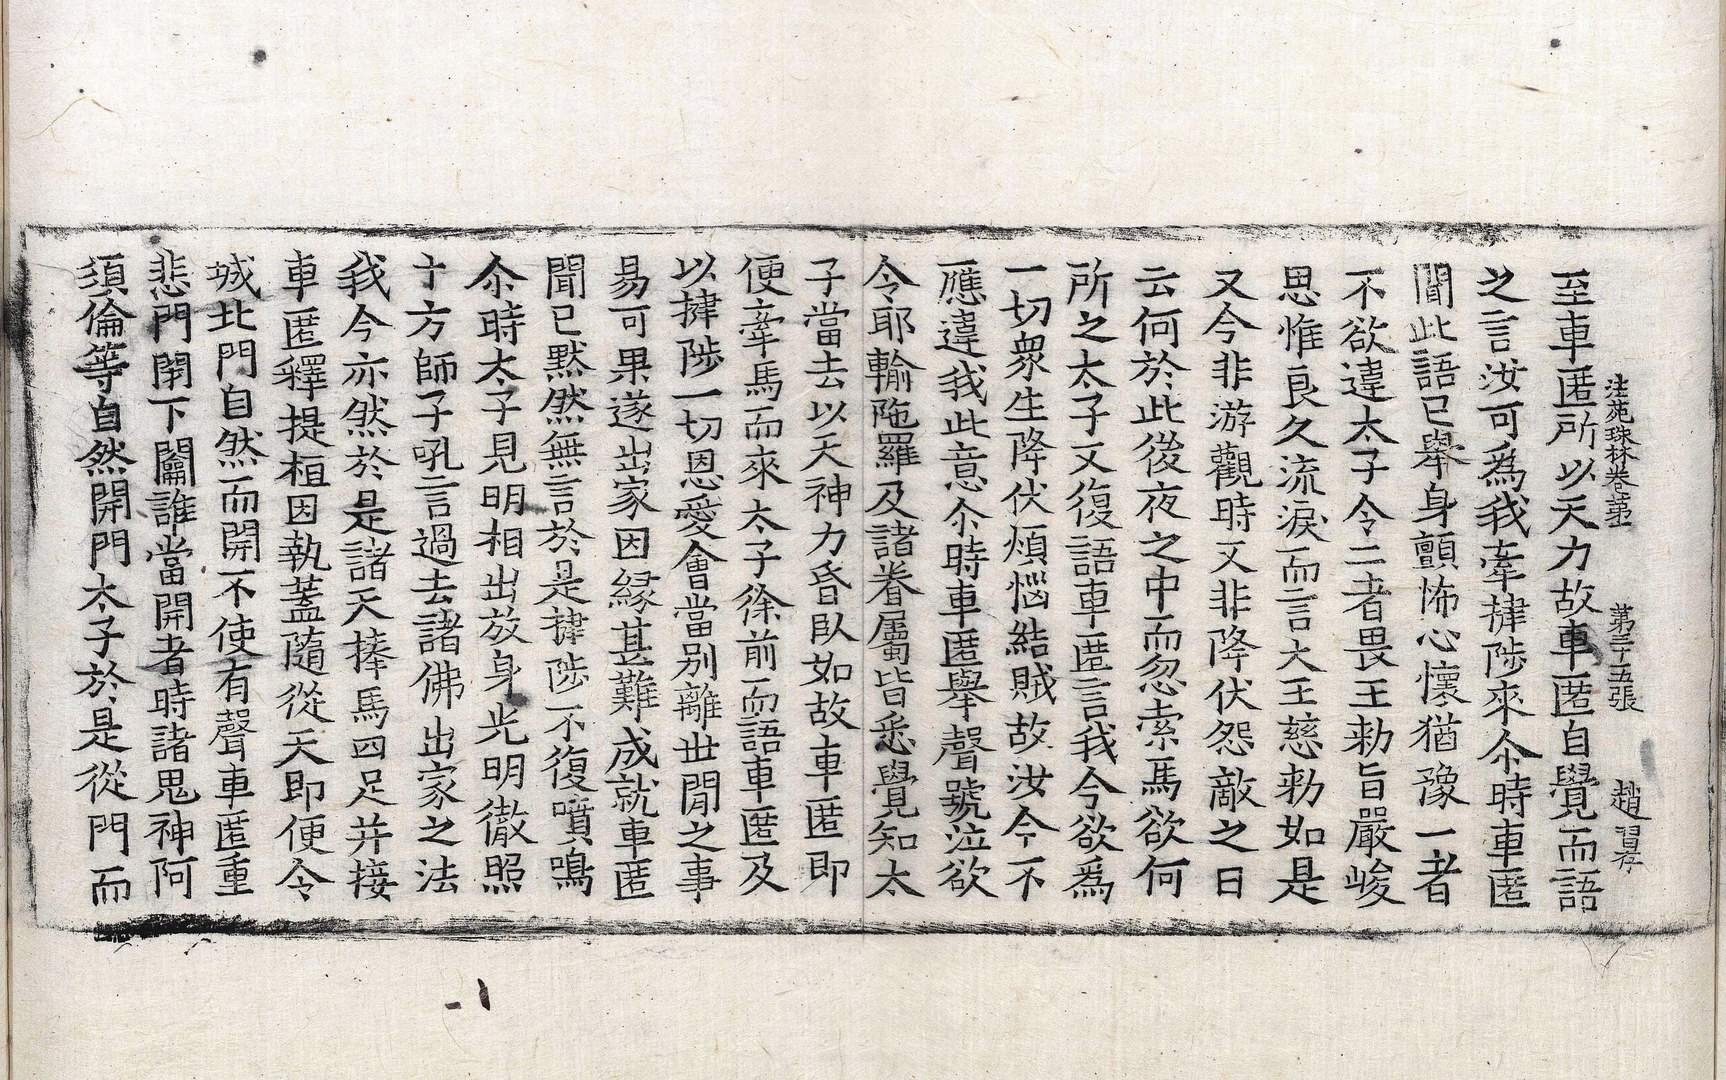 法苑珠林卷第十　第三十五張　趙習存
至車匿所以天力故車匿自覺而語
之言汝可爲我牽揵陟來尒時車匿
聞此語已擧身顫怖心懷猶豫一者
不欲違太子令二者畏王勑旨嚴峻
思惟良久流淚而言大王慈勑如是
又今非游觀時又非降伏怨敵之日
云何於此後夜之中而忽索馬欲何
所之太子又復語車匿言我今欲爲
一切衆生降伏煩惱結賊故汝今不
應違我此意尒時車匿擧聲號泣欲
令耶輸陁羅及諸眷屬皆悉覺知太
子當去以天神力昏臥如故車匿即
便牽馬而來太子徐前而語車匿及
以揵陟一切恩愛會當別離世閒之事
易可果遂出家因緣甚難成就車匿
聞已默然無言於是揵陟不復噴鳴
尒時太子見明相出放身光明徹照
十方師子吼言過去諸佛出家之法
我今亦然於是諸天捧馬四足并接
車匿釋提桓因執蓋隨從天即便令
城北門自然而開不使有聲車匿重
悲門閉下關誰當開者時諸鬼神阿
須倫等自然開門太子於是從門而